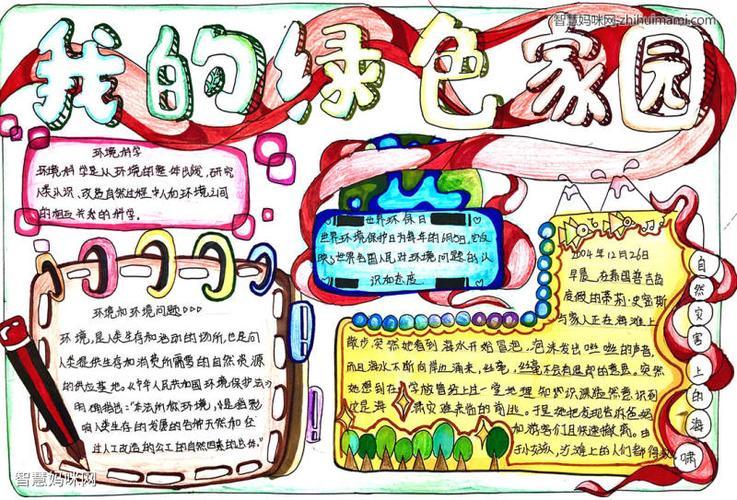 智慧妈咪网-zhihuimami.com
我的绿色家园
环境科学
环境科学是从环境的整体出发,研究
人类认识、改造自然过程中人和环境之间
的相互关系的科学。
世界环保日
世界环境保护日为每年的6月5日,它反
映了世界各国人民对环境问题的认
识和态度
环境和环境问题
环境,是人类生存和活动的场所,也是向
人类提供生存和消费所需要的自然资源
的供应基地。《中华人民共和国环境保护法》
明确指出:“本法所称环境,是指影
响人类生存的发展的各种天然和经
过人工改造的 自然因素的总体。”
2004年12月26日
早晨,在泰国普吉岛
度假的蒂莉·史密斯
与家人正在海滩上
散步,突然她看到海水开始冒泡,泡沫发出 的声音,
而且海水不断向岸边涌来,
她想到在 学放假前上过一堂地理 知识课 意识到
这是海 灾难来临的前兆。于是她把发现告诉爸妈
加 们且快速撤离。由
于 ,沙滩上的人们都得救
自然灾害上的海啸
智慧妈咪网